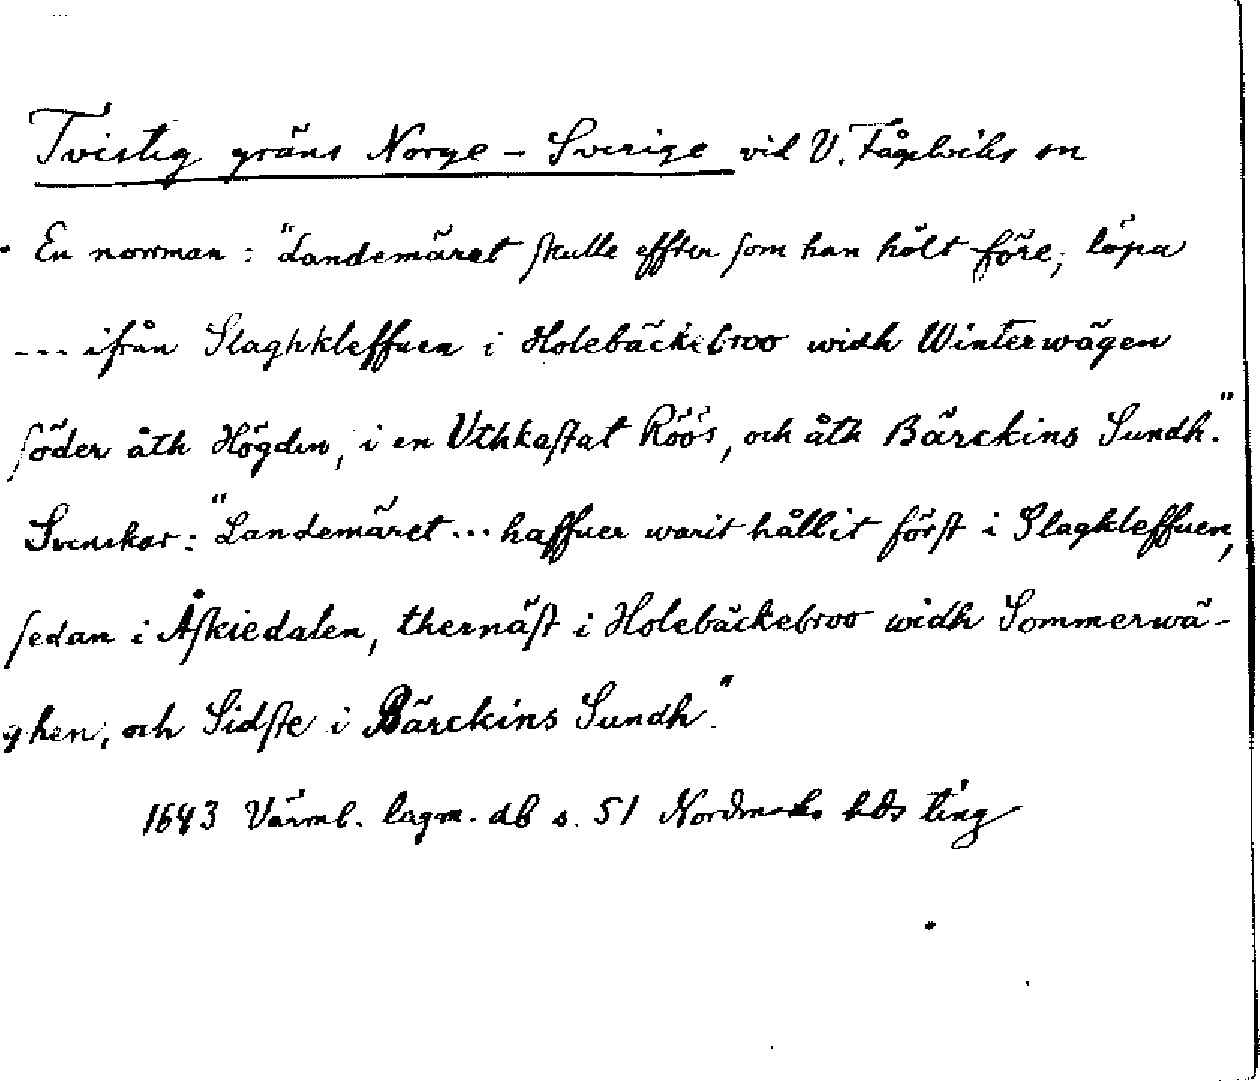 Tvistig gräns Norge – Sverige vid V. Fågelviks sn
En norrman: "Landemäret skulle effter som han hölt före, löpa
--- ifrån Slaghkleffuen i Holebäckebroo widh Winterwägen
söder åth Högden, i en Uthkastat Röös, och åth Bärckins Sundh."
Svenskar: "Landemäret ... haffuer warit hållit först i Slagkleffuen,
sedan i Åskiedalen, thernäst i Holebäckebroo widh Sommerwä-
ghen, och Sidste i Bärckins Sundh."
1643 Värml. lagm. db s. 51 Nordmarks hds ting